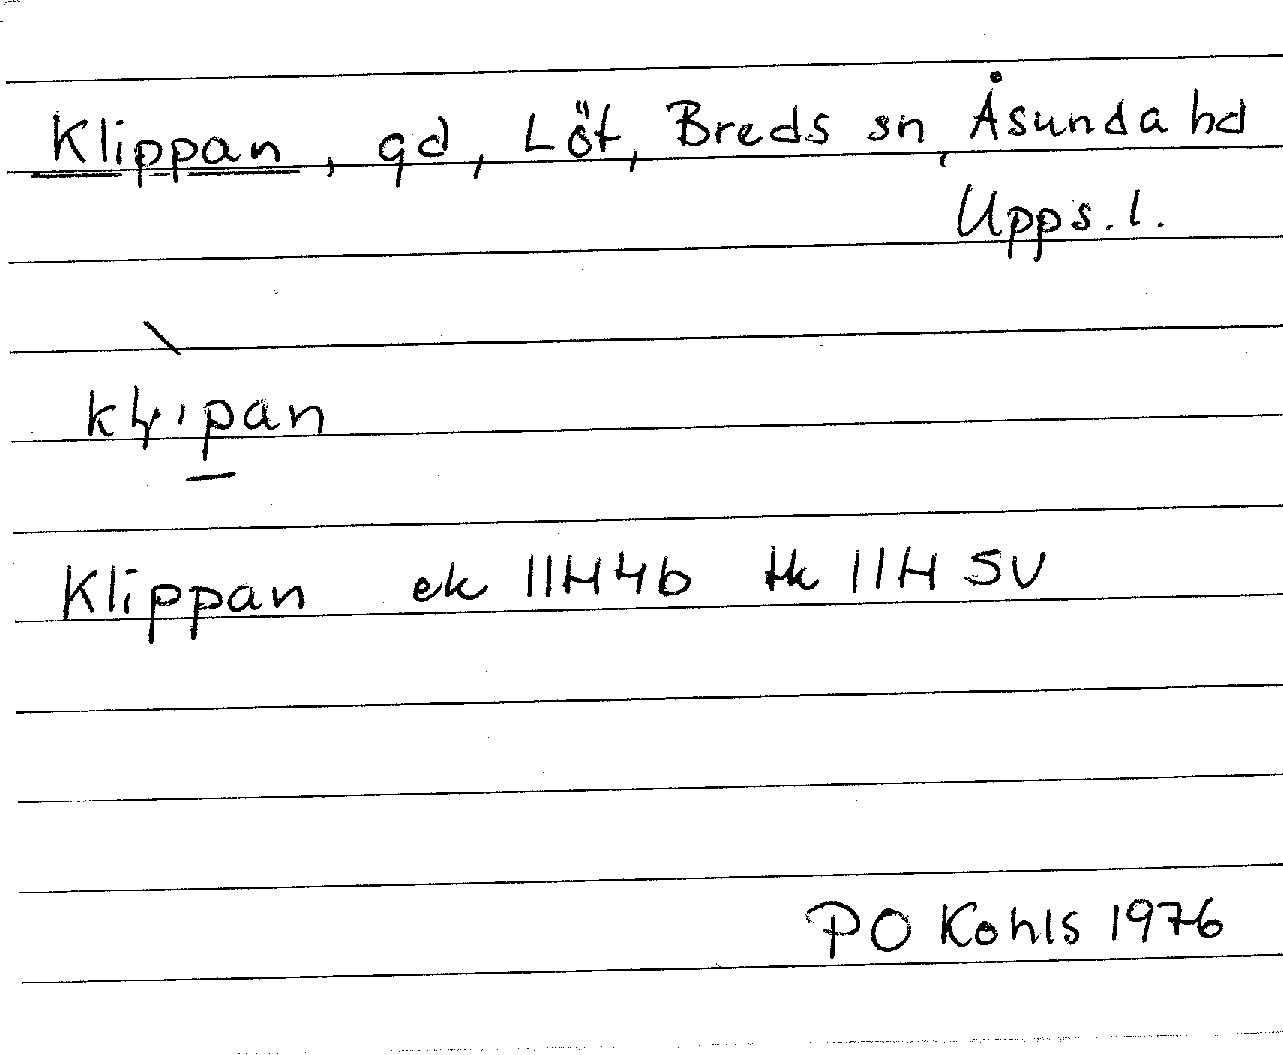 Klippan, gd, Löt, Breds sn, Åsunda hd
Upps. l.
Klippan ek 11H4b tk 11H SV
PO Kohls 1976